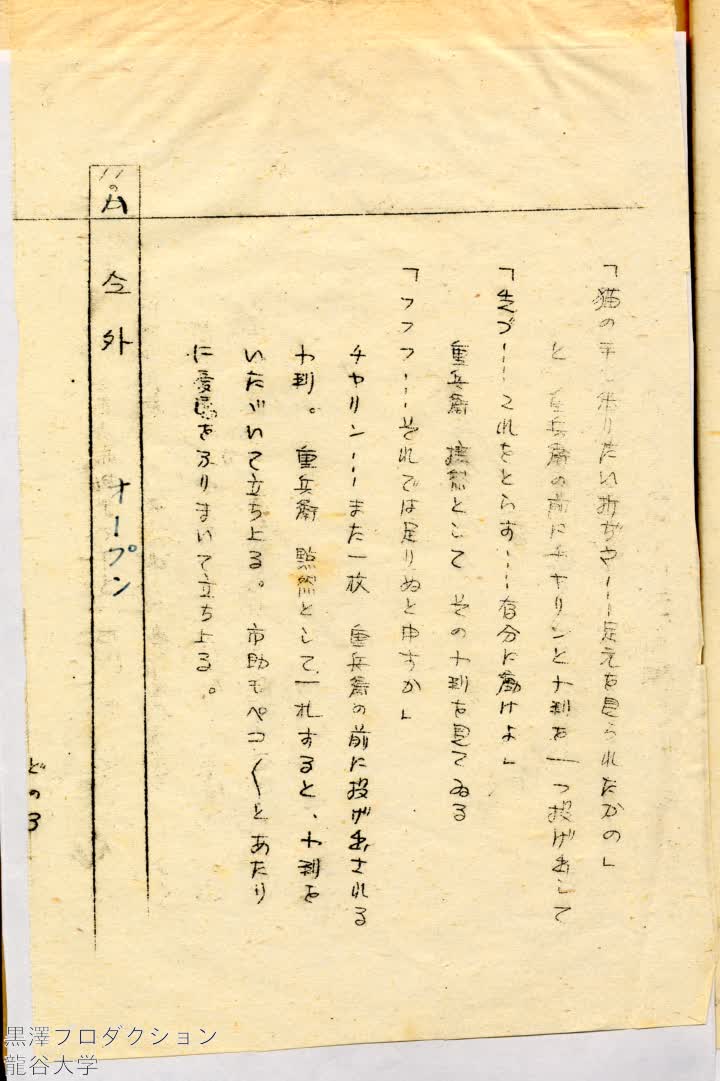 「猫の手も借りたい折ぢや……足元を見られたかの」
と 重兵衛の前にチヤリンと小判を一つ投げ出して
「先づ……これをとらす……存分に働けよ」
重兵衛 然として その小判を見てゐる
「フフフ……それでは足りぬと申すか」
チヤリン……また一枚 重兵衛の前に投げ出される
小判。 重兵衛 黙然として一礼すると、小判を
いたゞいて立ち上る。 市助もペコ〱とあたり
に愛嬌をふりまいて立ち上る。
11の 外 オープン
どの
黒澤プロダクション
龍谷大学